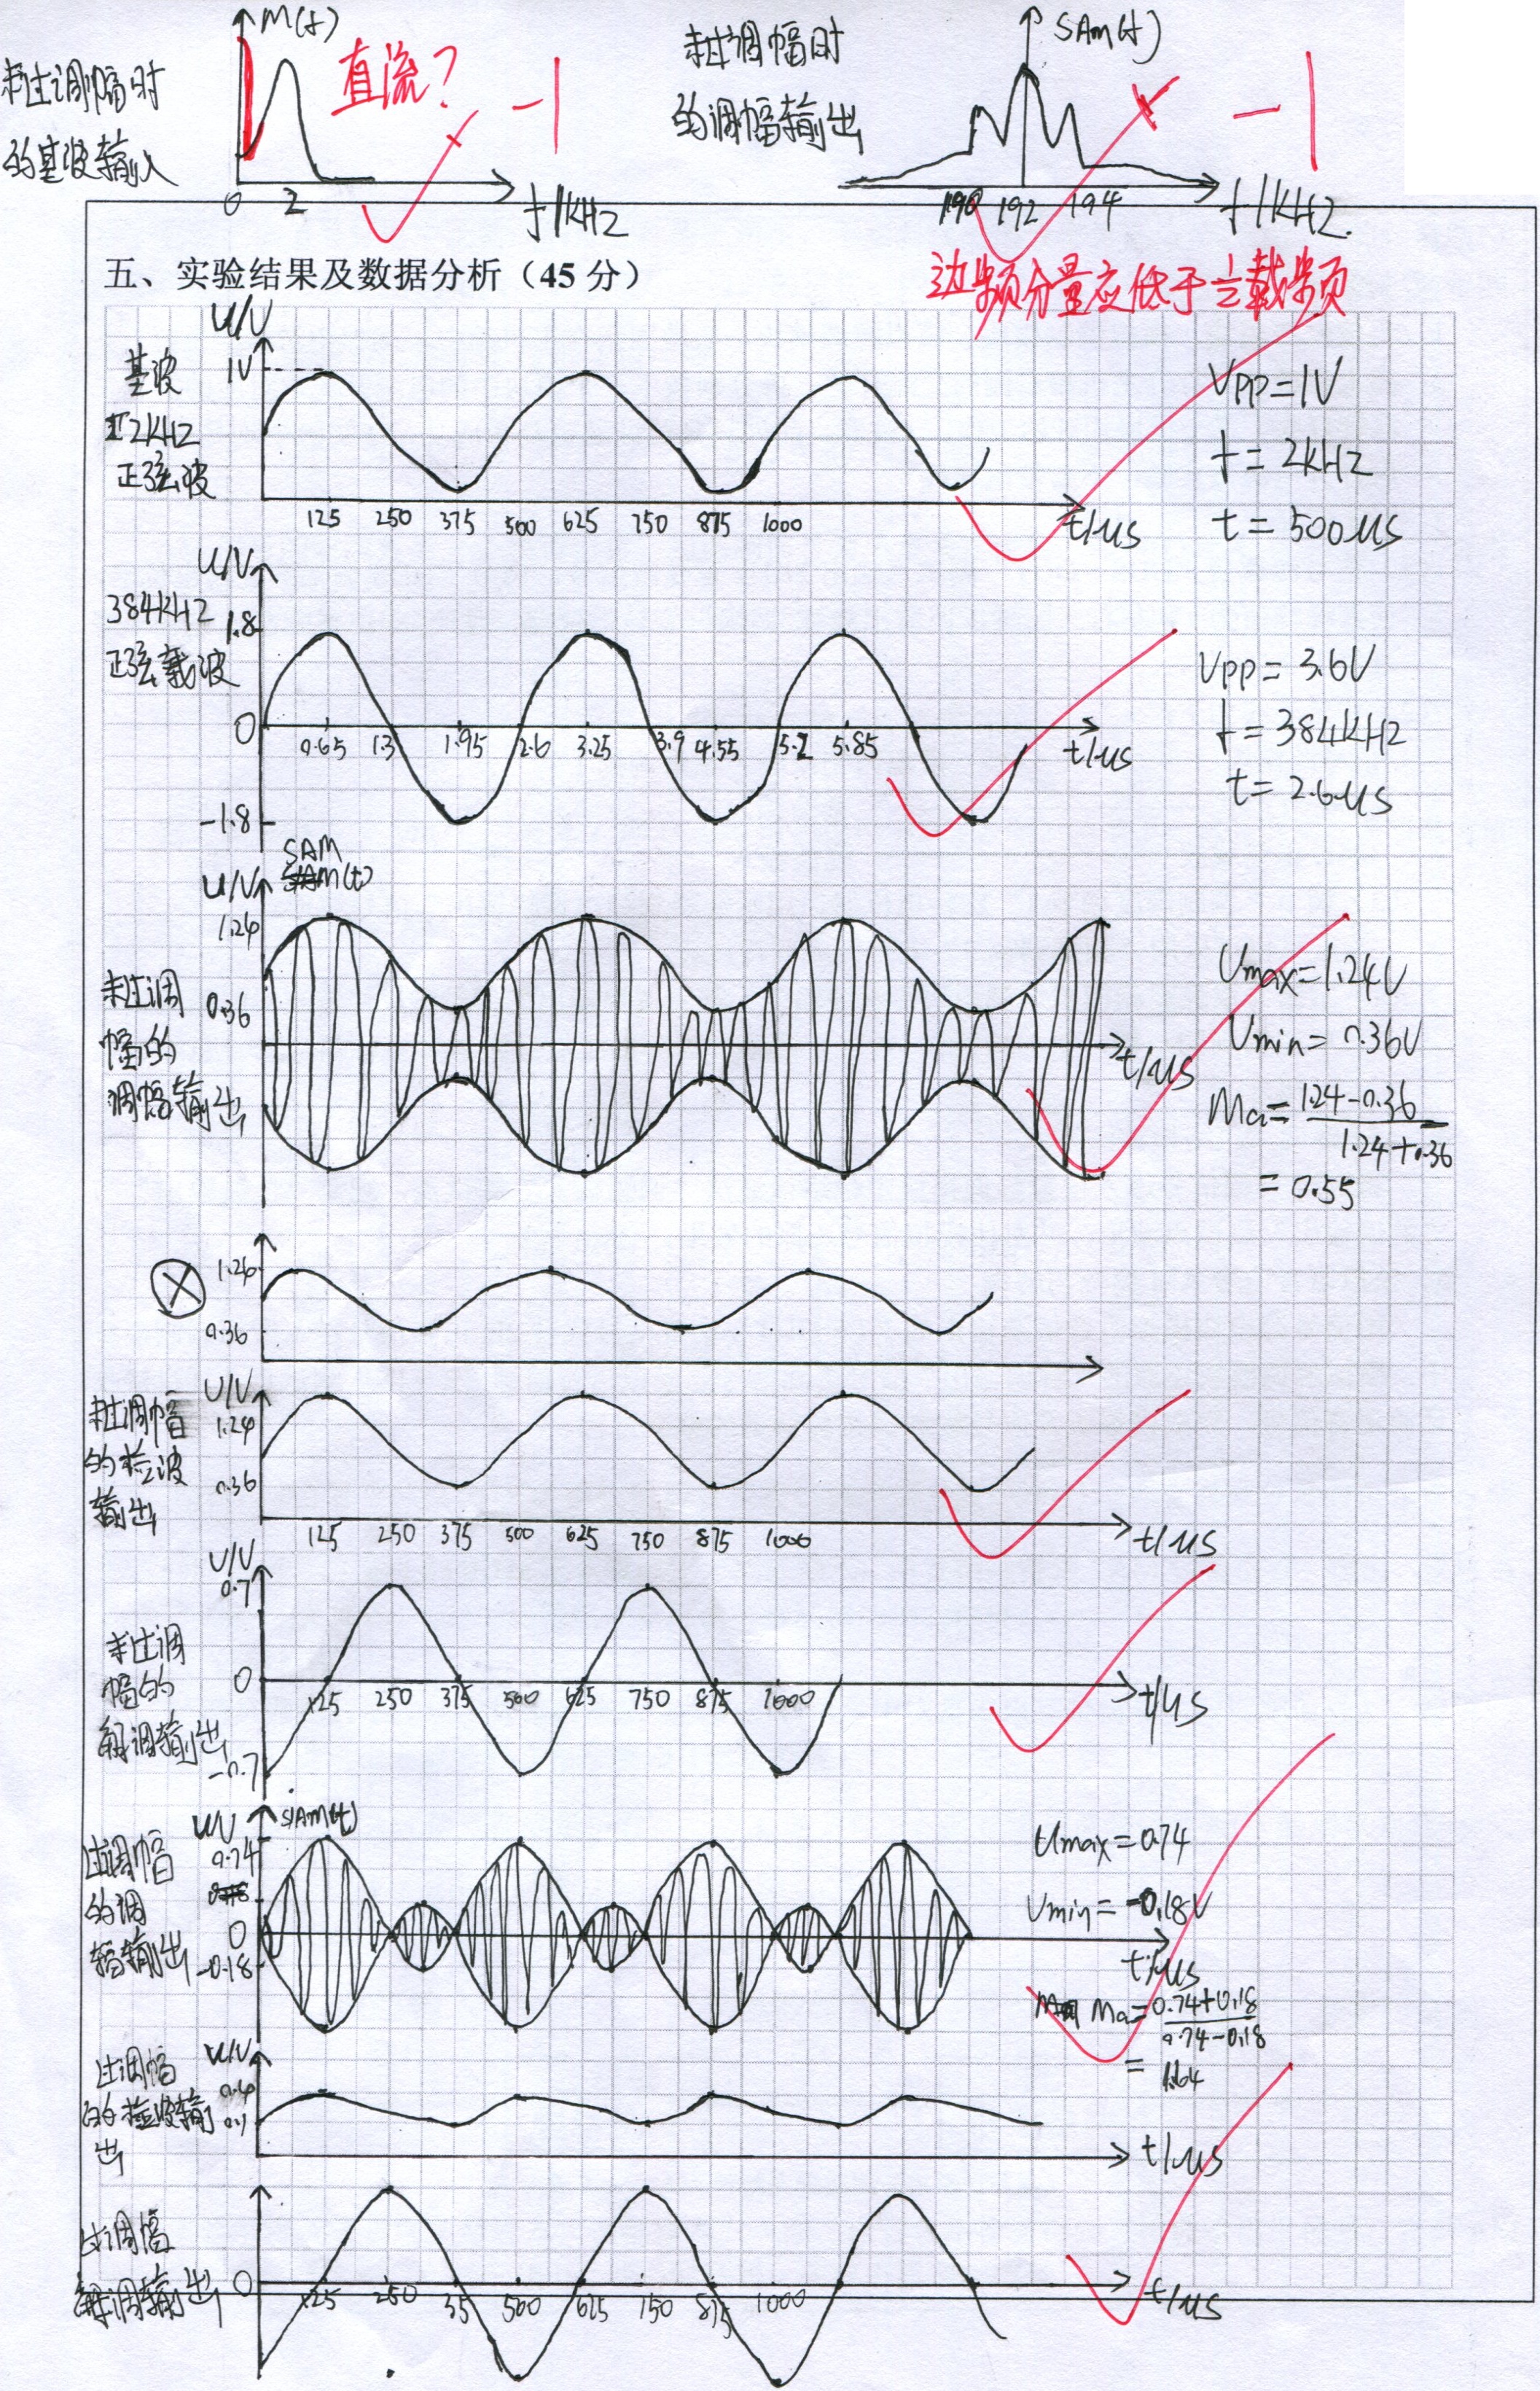 M(f)
未过调幅时
的基波输入
直流？
-1
0 2
f/kHz
未过调幅时
的调幅输出
SAM(f)
-1
190 192 194
f/kHz.
边频分量应低于½载频
五、实验结果及数据分析（45 分）
U/V
基波
2kHz
正弦波
1V
125 250 375 500 625 750 875 1000
t/μs
VPP=1V
f=2kHz
t=500μs
U/V
384kHz
正弦载波
1.8
0
-1.8
0.65 1.3 1.95 2.6 3.25 3.9 4.55 5.2 5.85
t/μs
VPP=3.6V
f=384kHz
t=2.6μs
SAM
U/V SAM(t)
1.24
0.36
未过调
幅的
调幅输出
t/μs
Umax=1.24V
Umin=0.36V
Ma=1.24-0.36
1.24+0.36
=0.55
1.24
0.36
U/V
未过调幅
的检波
输出
1.24
0.36
125 250 375 500 625 750 875 1000
t/μs
U/V
0.7
未过调
幅的
解调输出
0
-0.7
125 250 375 500 625 750 875 1000
t/μs
U/V SAM(t)
过调幅
的调
幅输出
0.74
0
-0.18
t/μs
Umax=0.74
Umin=-0.18V
Ma=0.74+0.18
0.74-0.18
=1.64
U/V
过调幅
的检波输
出
0.4
0.1
t/μs
过调幅
解调输出
0
125 250 35 500 625 750 875 1000
t/μs